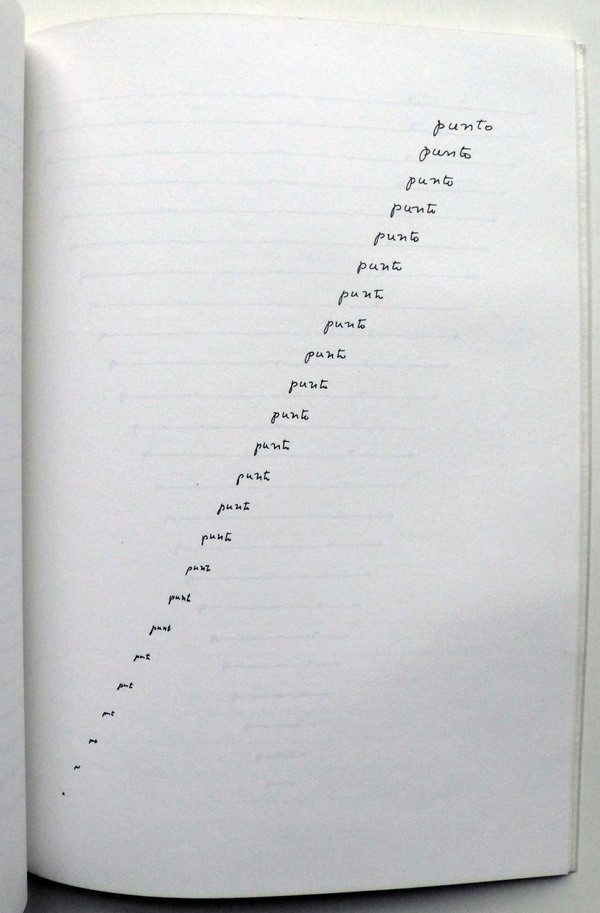 punto
punto
punto
punto
punto
punto
punto
punto
punto
punto
punto
punto
punto
punto
punto
punt
punt
punt
put
put
.